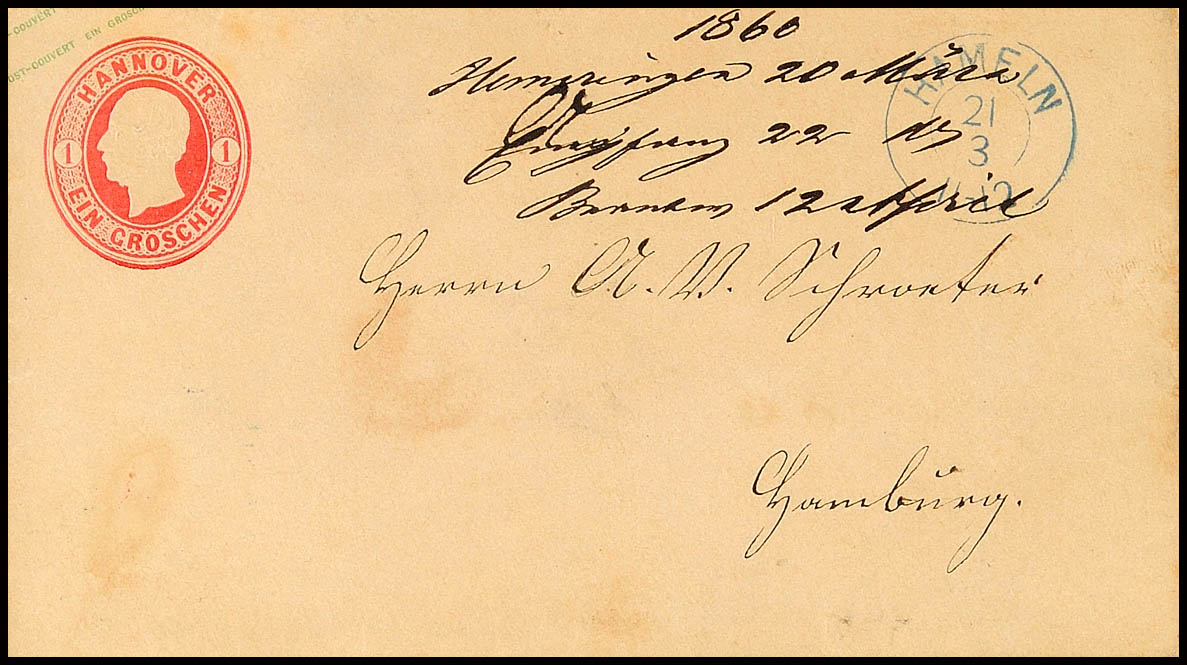 POST-COUVERT EIN GROSCH
OST-COUVERT EIN GROSCH
HANNOVER
1 1
EIN GROSCHEN
1860
Hemeringen 20 März
Empfang 22
12 April
HAMELN
21
3
Herrn A. W. Schroeter
Hamburg.